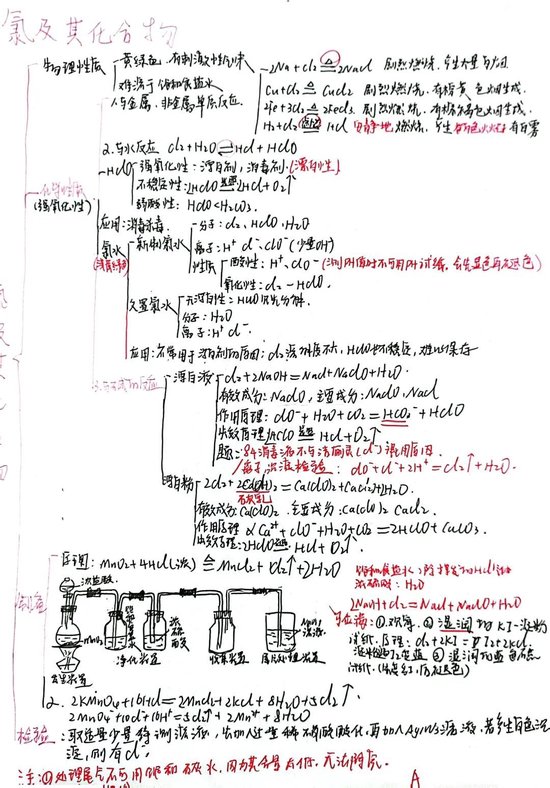 氯及其化合物
物理性质
黄绿色 有刺激性气味
难溶于饱和食盐水
1.与金属、非金属单质反应.
2Na+Cl₂≜2NaCl 剧烈燃烧.产生大量白烟.
Cu+Cl₂≜CuCl₂ 剧烈燃烧,有棕黄色烟生成.
2Fe+3Cl₂≜2FeCl₃ 剧烈燃烧,有棕褐色烟生成.
H₂+Cl₂ 点燃 HCl 安静地燃烧,产生苍白色火焰 有白雾
2.与水反应 Cl₂+H₂O⇌HCl+HClO
HClO
强氧化性:漂白剂,消毒剂.(漂白性)
不稳定性:2HClO 光照 2HCl+O₂↑
弱酸性:HClO<H₂CO₃.
化学性质
(强氧化性)
应用:消毒杀毒.
氯水
新制氯水
分子:Cl₂、HClO、H₂O
离子:H⁺ Cl⁻、ClO⁻(少量OH⁻)
性质
酸性:H⁺、ClO⁻(测PH值时不可用PH试纸,会先显色再褪色)
氧化性:Cl₂-HClO.
久置氯水
无漂白性:HClO见光分解.
分子:H₂O
离子:H⁺ Cl⁻.
应用:不常用于漂白剂的原因:Cl₂溶解度不大,HClO也不稳定,难以保存
漂白液
Cl₂+2NaOH=NaCl+NaClO+H₂O.
有效成为:NaClO,主要成分:NaClO、NaCl
作用原理:ClO⁻+H₂O+CO₂=HCO₃⁻+HClO
失效原理2HClO 光照 HCl+O₂↑
题:84消毒液不与洁厕灵(Cl⁻)混用原因
离子浓液检验:ClO⁻+Cl⁻+2H⁺=Cl₂↑+H₂O.
漂白粉
2Cl₂+2Ca(OH)₂=Ca(ClO)₂+CaCl₂+2H₂O.
石灰乳
有效成分:Ca(ClO)₂.主要成为:Ca(ClO)₂ CaCl₂.
作用原理 Ca²⁺+ClO⁻+H₂O+CO₂=2HClO+CaCO₃.
失效原理:2HClO 光照 HCl+O₂↑.
制备
原理:MnO₂+4HCl(浓)≜MnCl₂+Cl₂↑+2H₂O
浓盐酸
MnO₂
饱和食盐水
浓硫酸
NaOH溶液
发生装置
净化装置
收集装置
尾气处理装置
饱和食盐水:除挥发的HCl
浓硫酸:H₂O
2NaOH+Cl₂=NaCl+NaClO+H₂O
①观察.②湿润的KI-淀粉
试纸.原理:Cl₂+2KI=I₂+2KCl.
2.2KMnO₄+16HCl=2MnCl₂+2KCl+8H₂O+5Cl₂↑.
2MnO₄⁻+10Cl⁻+16H⁺=5Cl₂↑+2Mn²⁺+8H₂O
检验:取适量少量待测溶液,先加入过量稀硝酸酸化,再加入AgNO₃溶液,若产生白色沉
淀,则有Cl⁻.
注:①处理尾气不可用饱和石灰水,因为其含量太低,无法除尽.